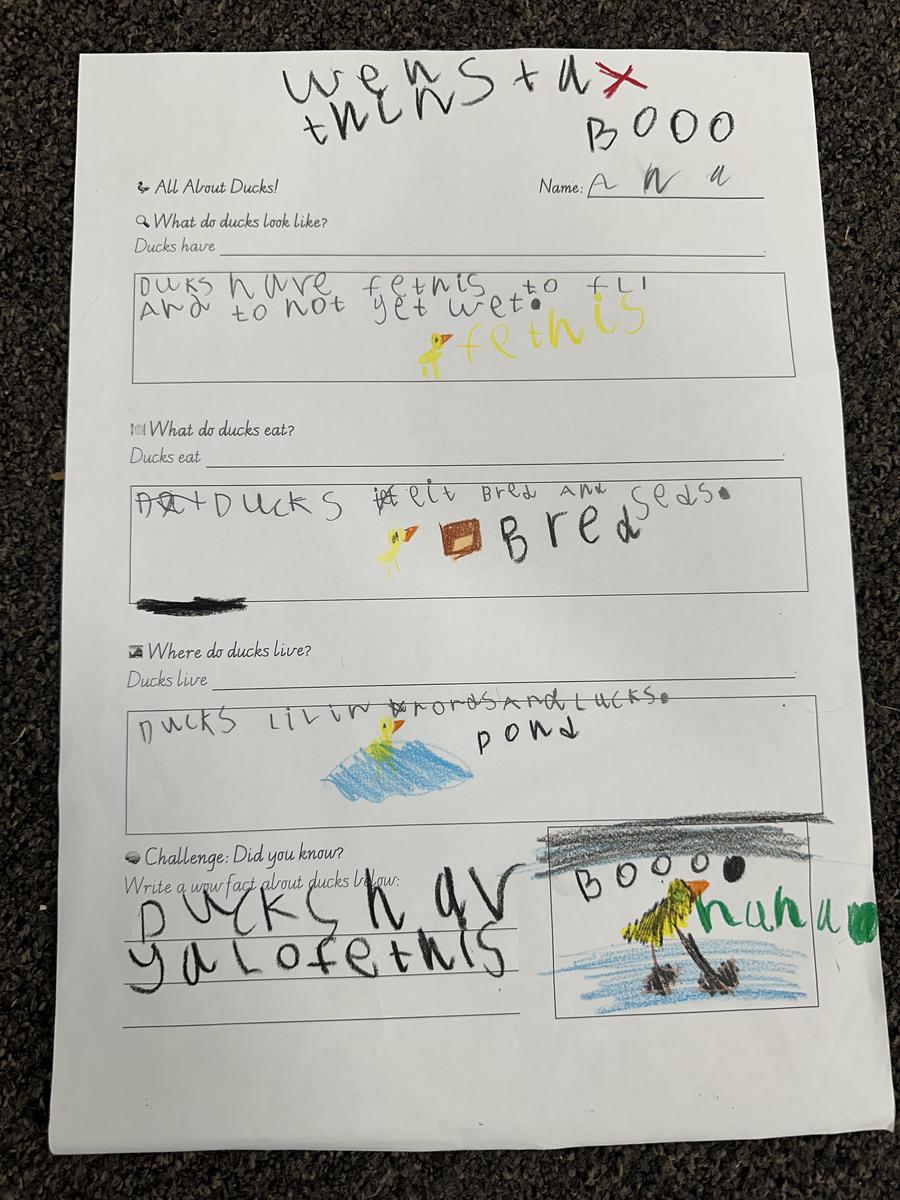 wensta
thins
BOOO
All About Ducks!
Name: Ana
What do ducks look like?
Ducks have
DUCKS have fethis to fLI
And to not get wet.
fethis
What do ducks eat?
Ducks eat
DUCKS eit Bred And Seds.
Bred
Where do ducks live?
Ducks live
DUCKS Liv in ponds And Lacks.
pond
Challenge: Did you know?
Write a wow fact about ducks below:
DUCKS hav
yaLo fethis
Booo
haha